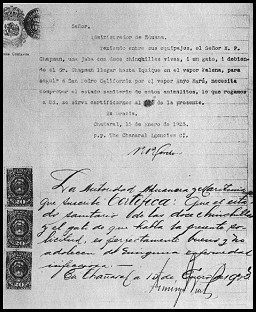 Señor,
Administrador de Aduana.
Teniendo entre sus equipajes, el Señor M. F.
Chapman, una jaba con doce chinchillas vivas, i un gato, i debien-
do el Sr. Chapman llegar hasta Iquique en el vapor Palena, para
seguir a San Pedro California por el vapor Anyo Marú, necesita
comprobar el estado sanitario de estos animalitos, le que rogamos
a Ud. se sirva certificarnos al pié de la presente.
Es Gracia,
Chañaral, 13 de Enero de 1923.
p.p. The Chanaral Agencies Cº
La Autoridad Aduanera y Marítima
que suscribe Certifica: Que el esta-
do sanitario de las doce chinchillas
y el gato de que habla la presente so-
licitud, es perfectamente bueno y no
adolecen de ninguna enfermedad
infecciosa.
En Chañaral a 13 de Enero de 1923
20
20
20